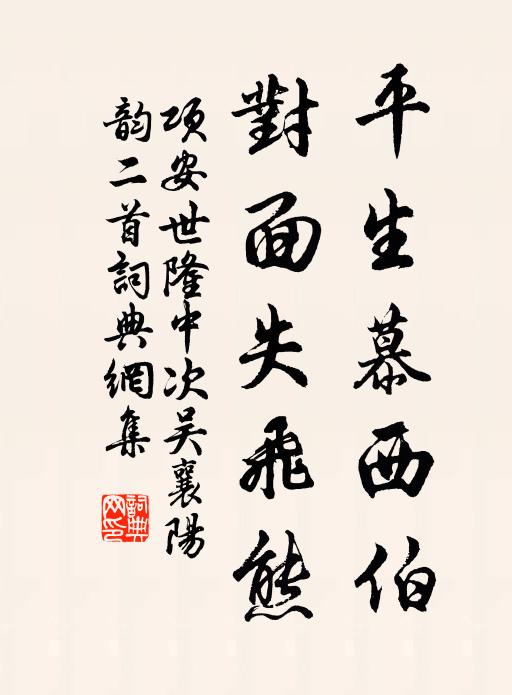 平生慕西伯
對面失飛熊
項安世隆中次吴襄陽
韵二首詞典網集
詞典網印